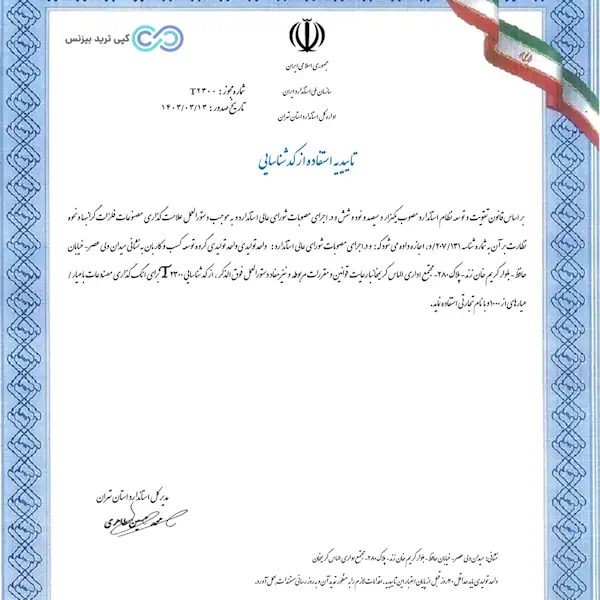 کپی ترید بیزنس
جمهوری اسلامی ایران
سازمان ملی استاندارد ایران
اداره کل استاندارد استان تهران
شماره مجوز : T۲۳۰۰
تاریخ صدور : ۱۴۰۳/۰۳/۱۳
تاییدیه استفاده از کد شناسایی
بر اساس قانون تقویت و توسعه نظام استاندارد مصوب یکهزار و سیصد و نود و شش و در اجرای مصوبات شورای عالی استاندارد و به موجب دستورالعمل علامت گذاری مصنوعات فلزات گرانبها و نحوه
نظارت بر آن به شماره شناسه ۲۰۷/۱۳۱/د، اجازه داده می شود که : و در اجرای مصوبات شورای عالی استاندارد : واحد تولیدی واحد تولیدی گروه توسعه کسب و کار بان به نشانی میدان ولی عصر- خیابان
حافظ - بلوار کریم خان زند - پلاک ۲۸۰- مجتمع اداری الماس کریمخان با رعایت قوانین و مقررات مربوطه و نیز مفاد دستورالعمل فوق الذکر ، از کد شناسایی T۲۳۰۰ برای انگ گذاری مصنوعات با عیار /
عیارهای از ۱۰۰۰ و با نام تجارتی استفاده نماید.
مدیر کل استاندارد استان تهران
نشانی: میدان ولی عصر- خیابان حافظ - بلوار کریم خان زند - پلاک ۲۸۰- مجتمع اداری الماس کریمخان
واحد تولیدی باید حداقل ۲۰ روز قبل از پایان اعتبار این تاییدیه، اقدامات لازم را به منظور تمدید آن و به روز رسانی مستندات بعمل آورد.